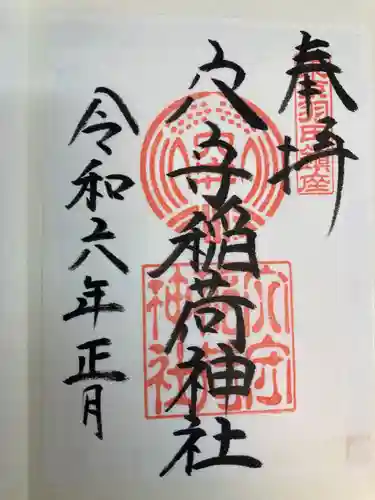 奉拝
東京羽田鎮座
穴守稲荷神社
穴守稲荷神社
令和六年正月